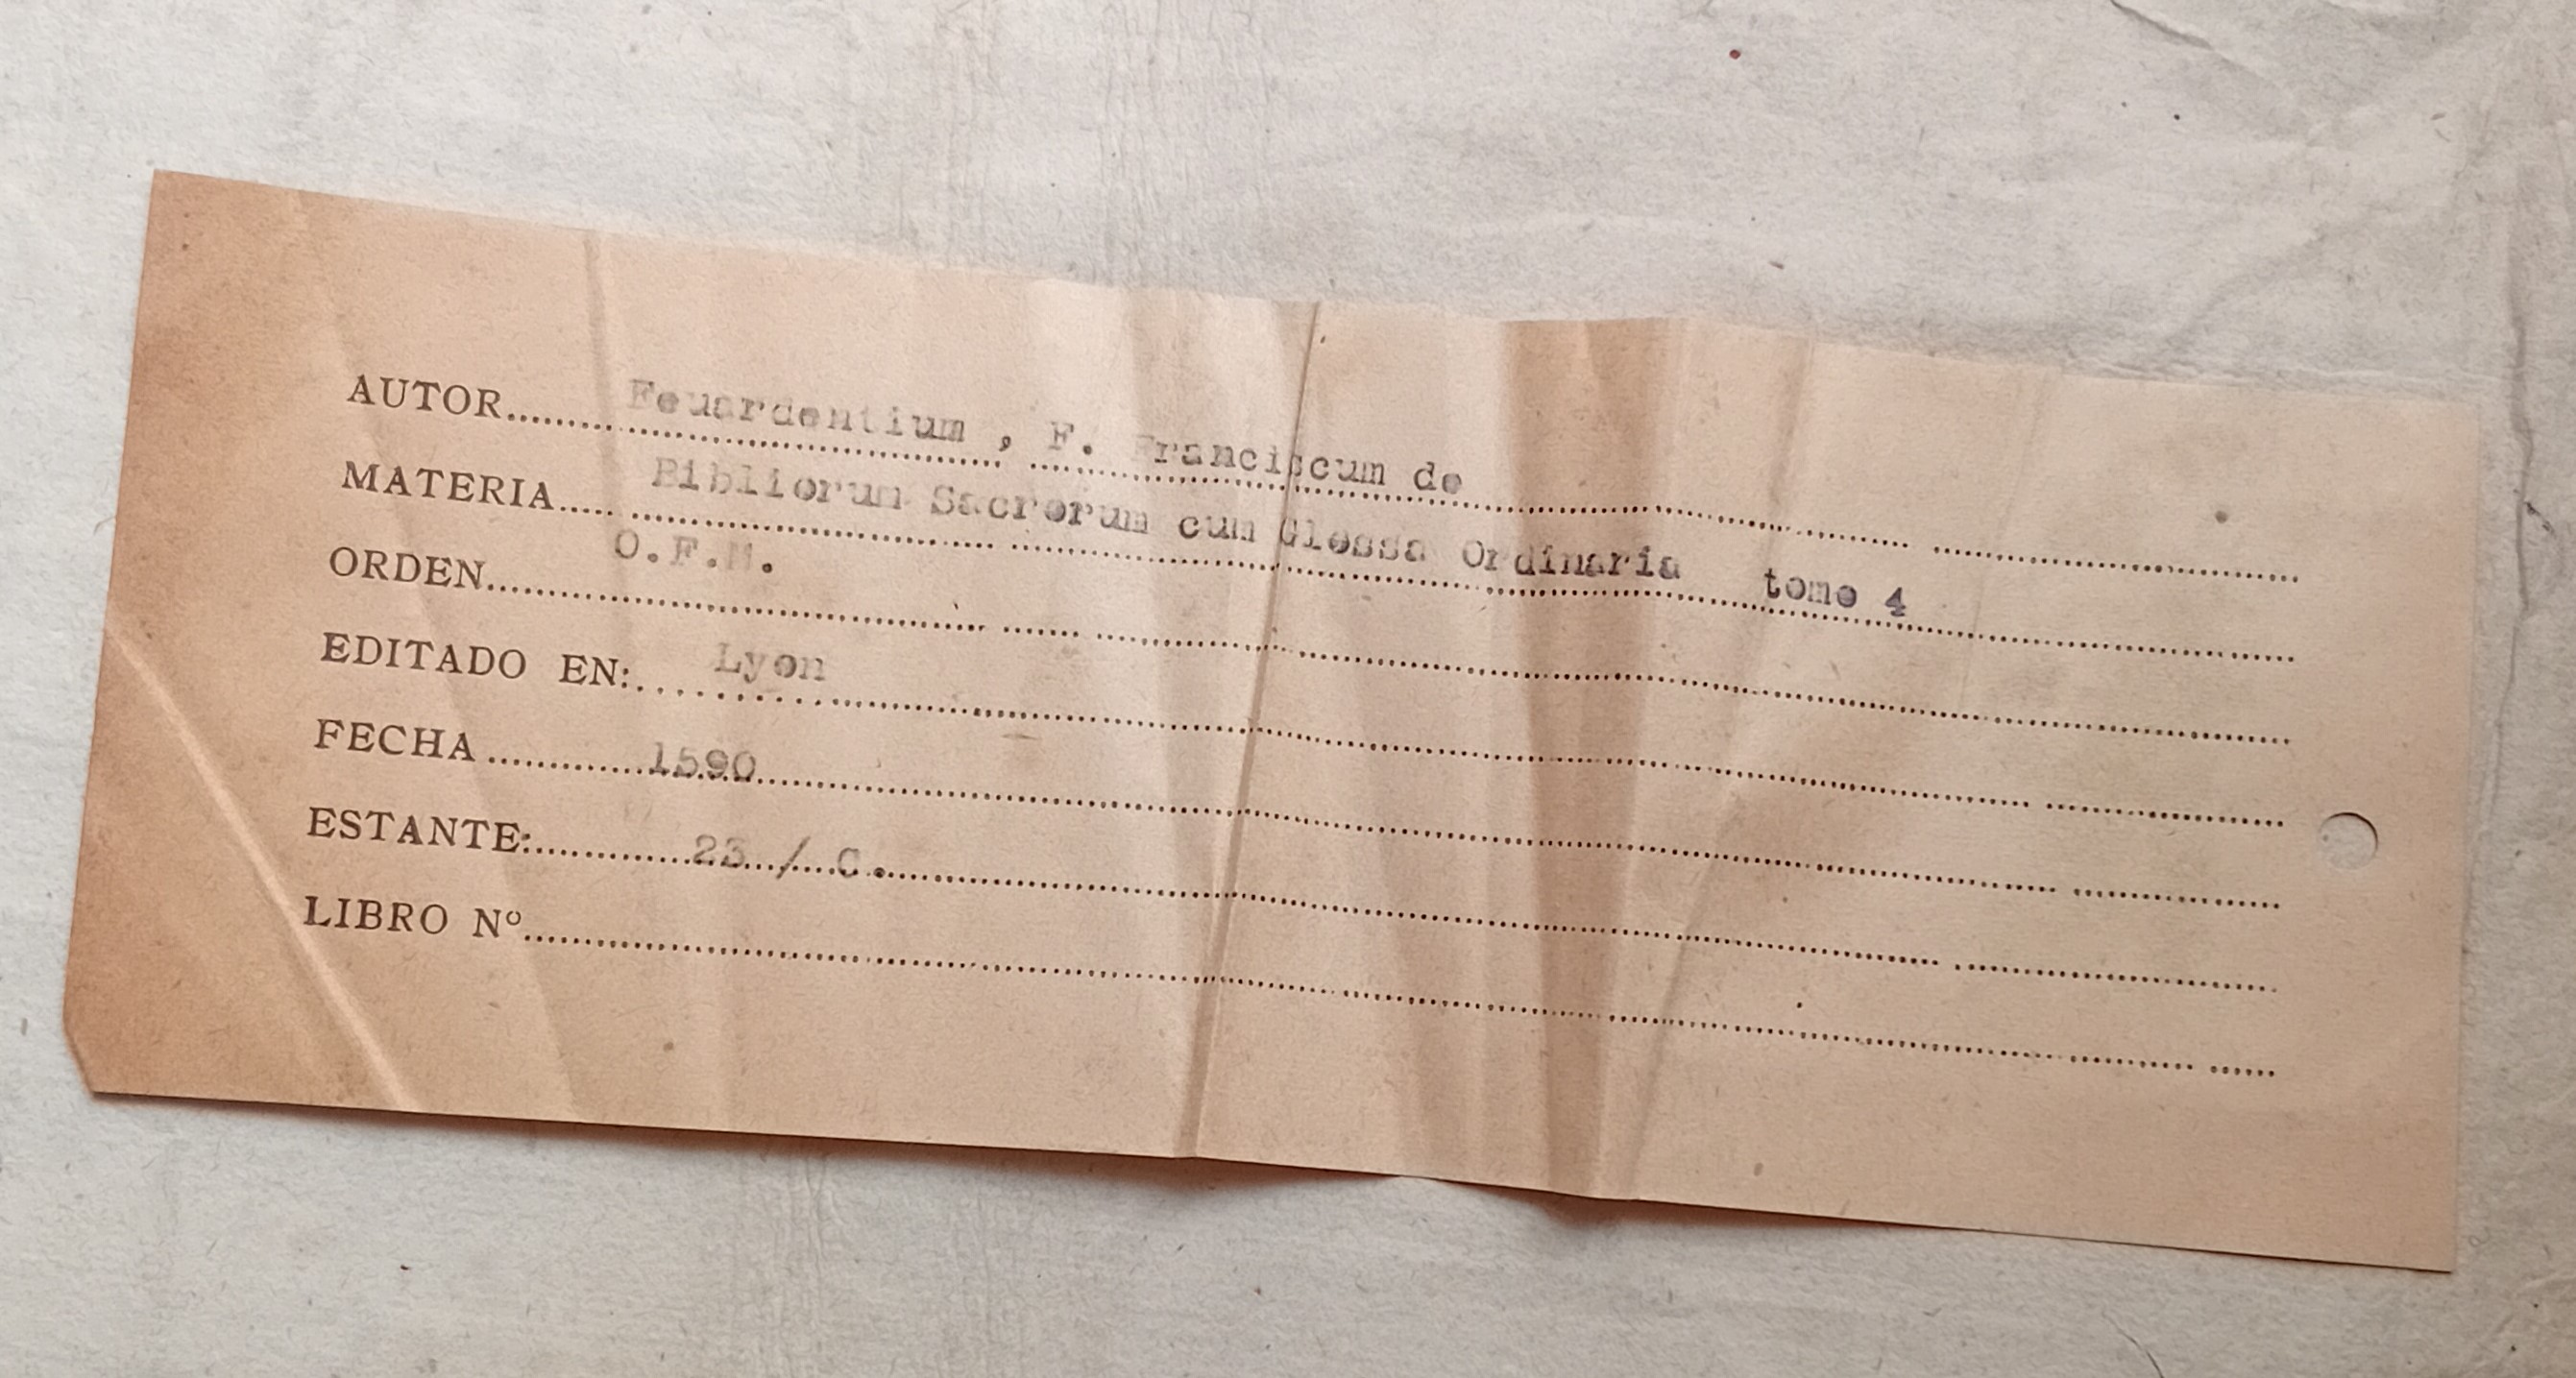 AUTOR.......... Feuardentium , F. Franciscum de
MATERIA..... Bibliorum Sacrorum cum Glossa Ordinaria tomo 4
ORDEN.......... O.F.M.
EDITADO EN:.... Lyon
FECHA .......... 1590
ESTANTE:.......... 23 / C.
LIBRO Nº..........